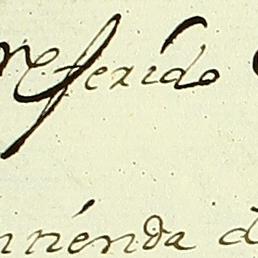 referido
ntienda d